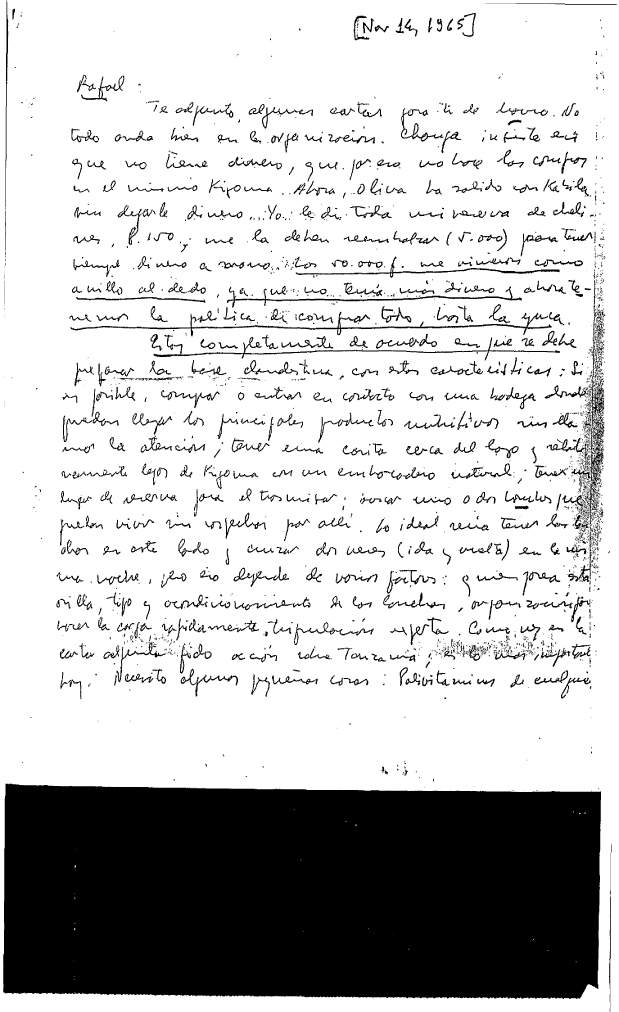 1,
[Nov 14, 1965]
Rafael :
Te adjunto, algunas cartas para ti de . No
todo anda bien en la organización. Changa insiste en
que no tiene dinero, que por eso no hace las compras
en el mismo Kigoma. Ahora, Oliva ha salido con Kabila
sin dejarle dinero. Yo le di toda mi reserva de cheli-
nes, 8.150, me la deben reembolzar (5.000) para tener
siempre dinero a mano. Los 50.000 f. me vinieron como
anillo al dedo, ya que no tenía más dinero y ahora te-
nemos la política de comprar todo, hasta la yuca.
Estoy completamente de acuerdo en que se debe
preparar la base clandestina, con estas características : Si
es posible, comprar o entrar en contacto con una bodega donde
puedan llegar los principales productos nutritivos sin lla
mar la atención; tener una casita cerca del lago y relati
vamente lejos de Kigoma con un embarcadero natural; tener un
lugar de reserva para el trasmisor; buscar uno o dos lanchas que
puedan vivir sin sospechas por allí. Lo ideal sería tener las lan
chas en este lado y cruzar dos veces (ida y vuelta) en la mis
ma noche, pero eso depende de varios factores: quien posea esta
orilla, tipo y acondicionamiento de las lanchas, organización para
sacar la carga rapidamente, tripulación experta. Como ves en la
carta adjunta pido acción sobre Tanzania; es lo mas importante
hoy. Necesito algunas pequeñas cosas : Polivitaminas de cualquier